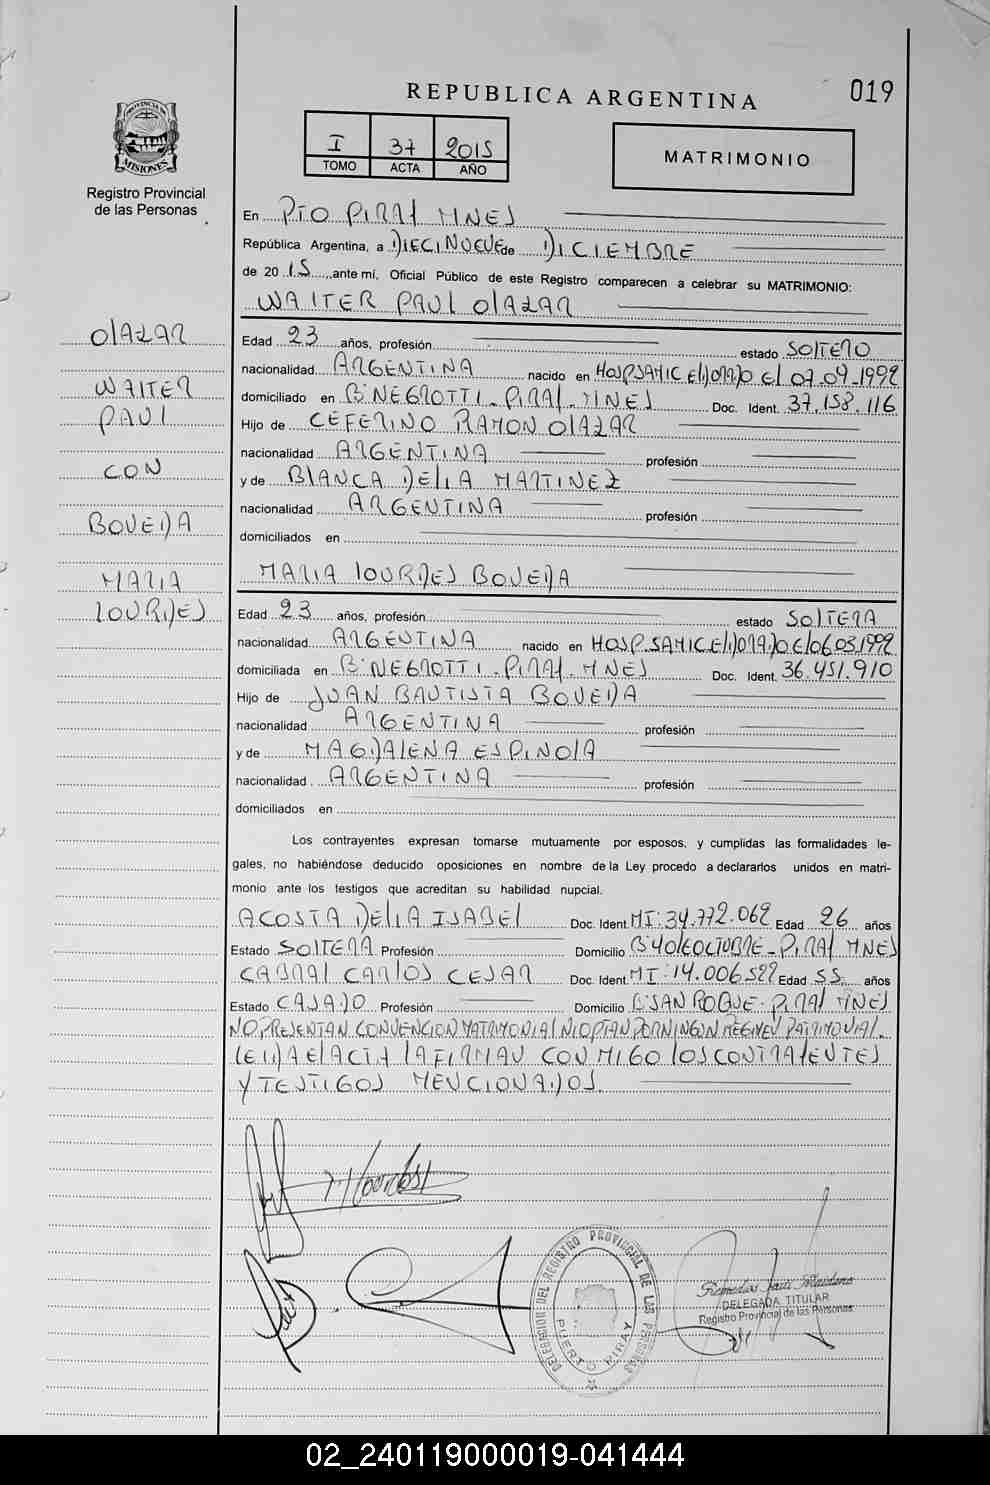 REPUBLICA ARGENTINA
019
PROVINCIA DE
MISIONES
Registro Provincial
de las Personas
I 37 2015
TOMO ACTA AÑO
MATRIMONIO
En PTO PIRAY MNES
República Argentina, a DIECINUEVE de DICIEMBRE
de 2015, ante mí, Oficial Público de este Registro comparecen a celebrar su MATRIMONIO:
WALTER PAUL OLAZAR
OLAZAR
WALTER
PAUL
CON
BOVEDA
MARIA
LOURDES
Edad 23 años, profesión estado SOLTERO
nacionalidad ARGENTINA nacido en HOSP.SAMIC ELDORADO EL 07-09-1992
domiciliado en B° NEGROTTI - PIRAY - MNES Doc. Ident. 37.158.116
Hijo de CEFERINO RAMON OLAZAR
nacionalidad ARGENTINA profesión
y de BLANCA DELIA MARTINEZ
nacionalidad ARGENTINA profesión
domiciliados en
MARIA LOURDES BOVEDA
Edad 23 años, profesión estado SOLTERA
nacionalidad ARGENTINA nacido en HOSP.SAMIC ELDORADO EL 06.03.1992
domiciliada en B° NEGROTTI - PIRAY - MNES Doc. Ident. 36.451.910
Hijo de JUAN BAUTISTA BOVEDA
nacionalidad ARGENTINA profesión
y de MAGDALENA ESPINOLA
nacionalidad ARGENTINA profesión
domiciliados en
Los contrayentes expresan tomarse mutuamente por esposos, y cumplidas las formalidades le-
gales, no habiéndose deducido oposiciones en nombre de la Ley procedo a declararlos unidos en matri-
monio ante los testigos que acreditan su habilidad nupcial.
ACOSTA DELIA ISABEL Doc. Ident. MI: 34.772.062 Edad 26 años
Estado SOLTERA Profesión Domicilio B° 4 DE OCTUBRE - PIRAY MNES
CABRAL CARLOS CESAR Doc. Ident. MI: 14.006.522 Edad 55 años
Estado CASADO Profesión Domicilio B° SAN ROQUE - PIRAY MNES
NO PRESENTAN CONVENCION MATRIMONIAL NI OPTAN POR NINGUN REGIMEN PATRIMONIAL.
LEIDA EL ACTA LA FIRMAN CONMIGO LOS CONTRAYENTES
Y TESTIGOS MENCIONADOS.
DELEGACION DEL REGISTRO PROVINCIAL DE LAS PERSONAS
PUERTO PIRAY
DELEGADA TITULAR
Registro Provincial de las Personas
02_240119000019-041444